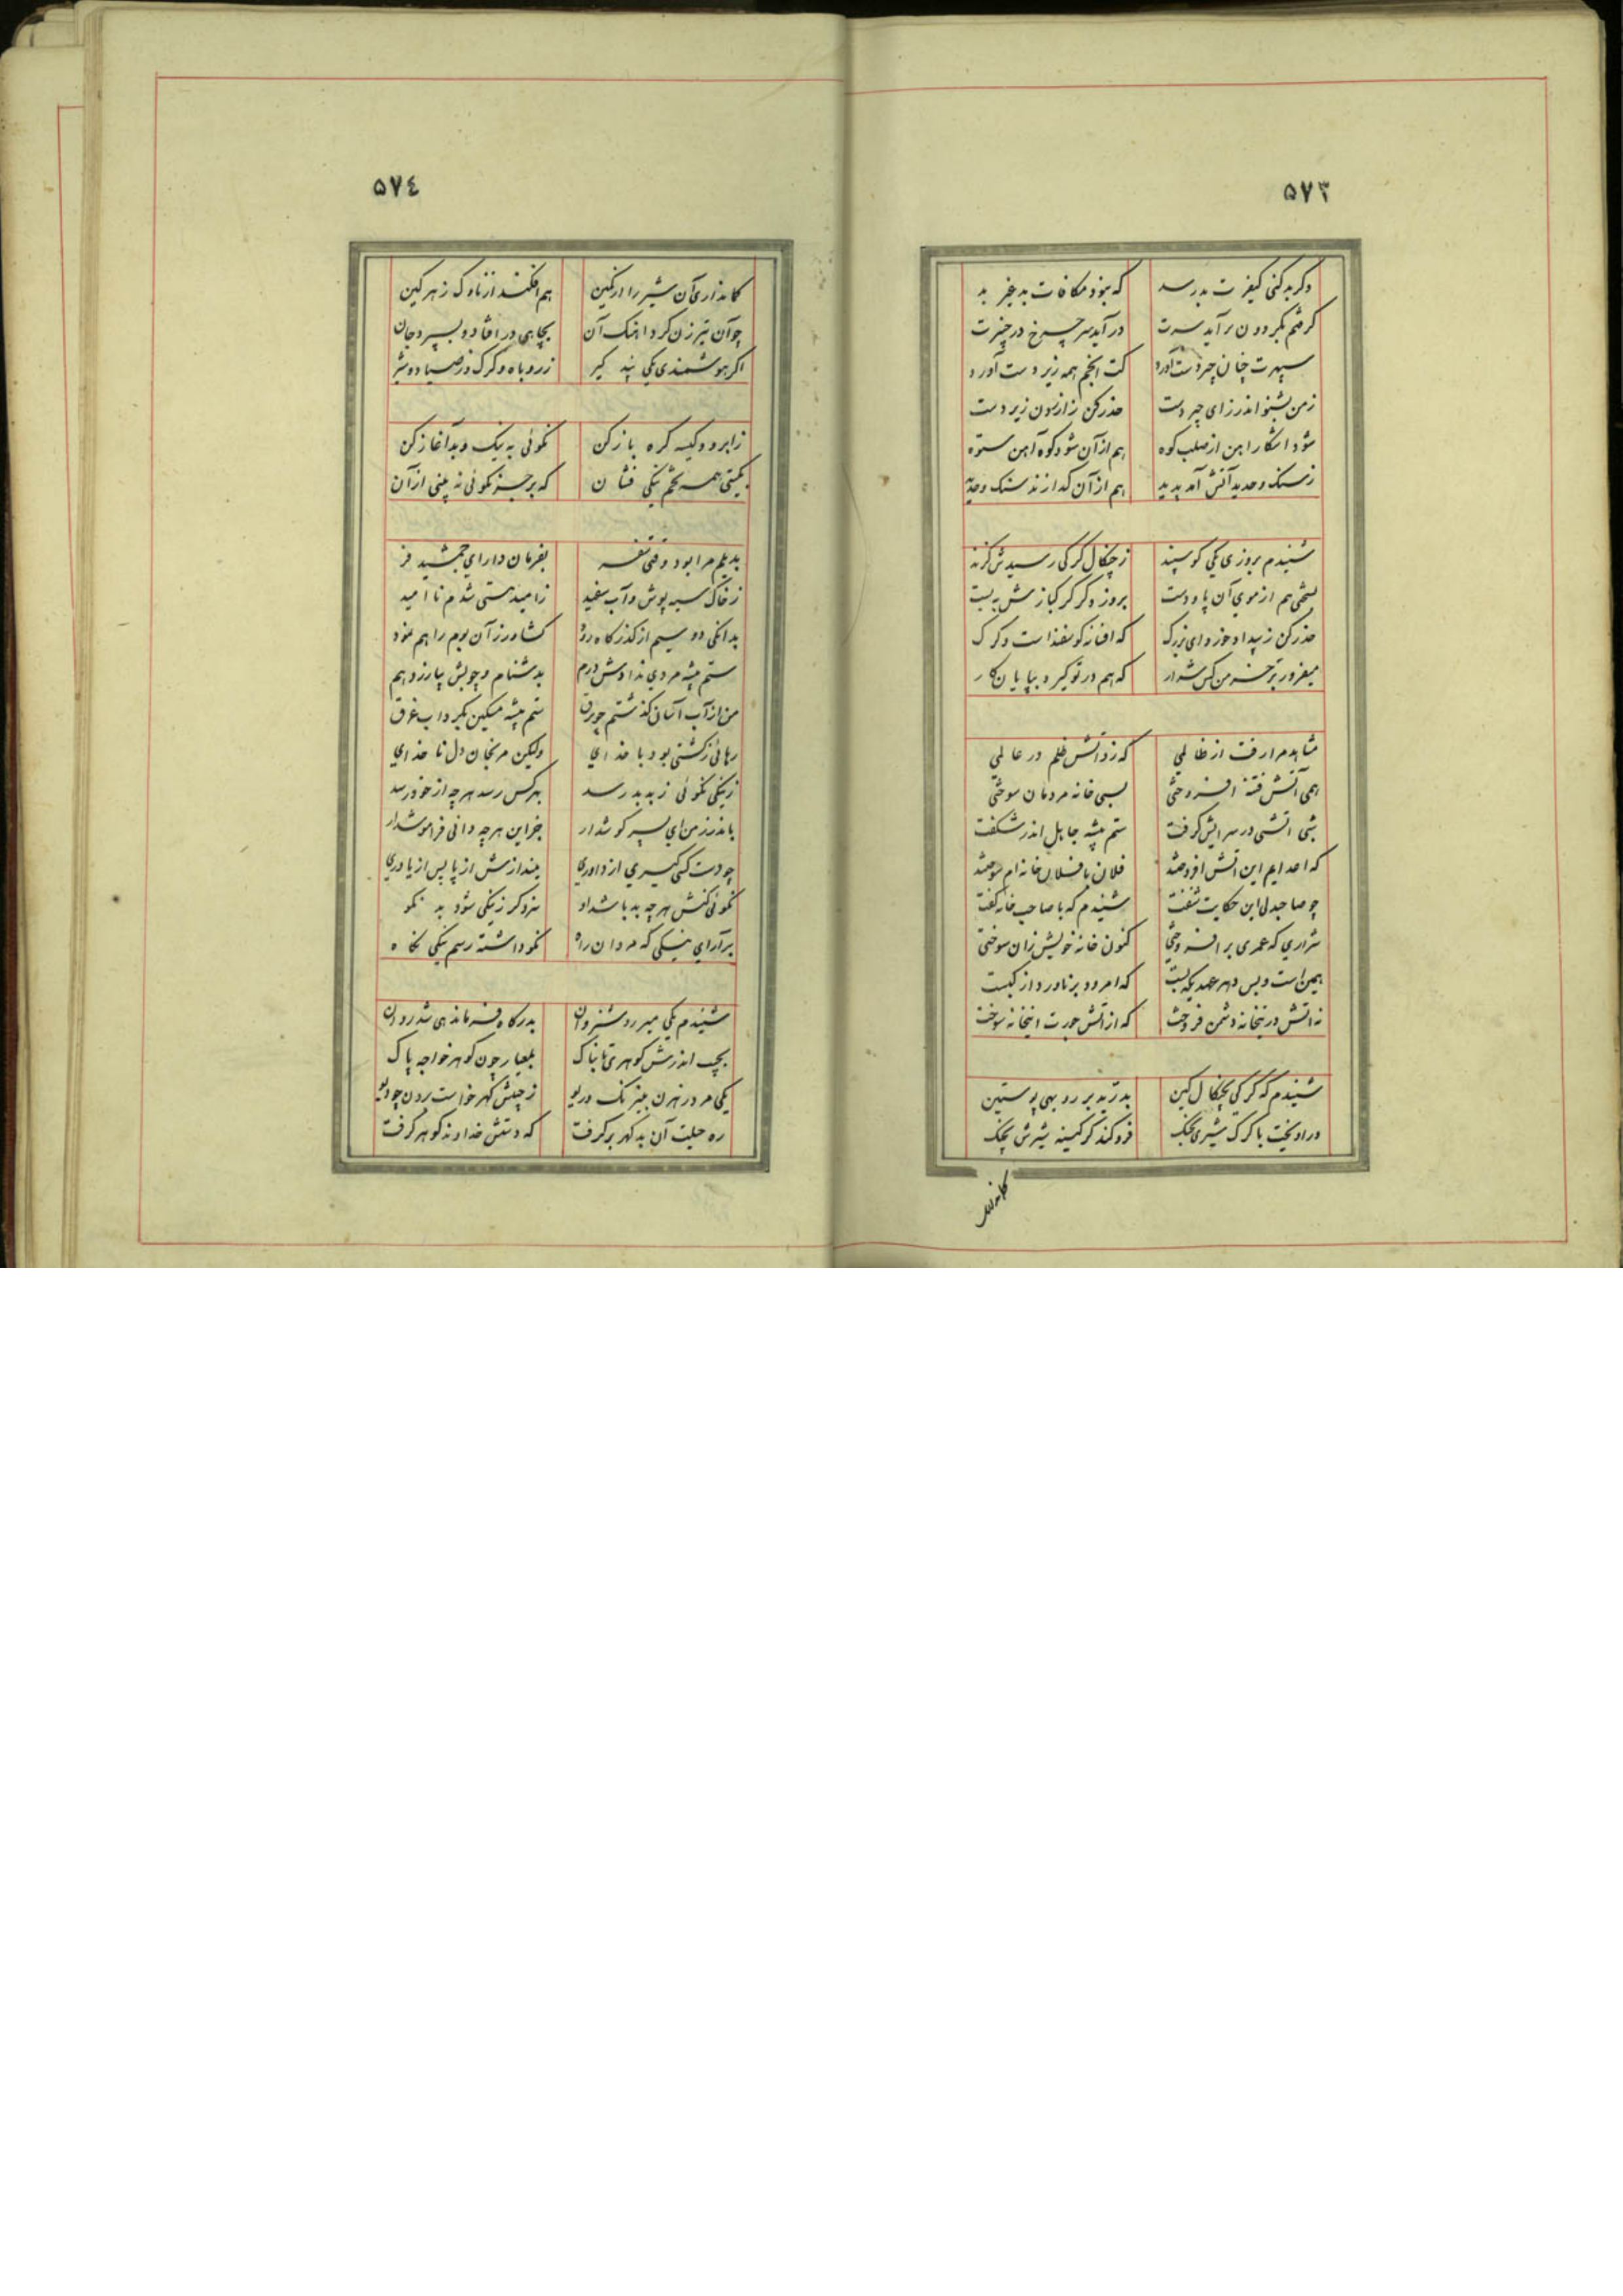 ۵۷۳
وگر بد کنی کیفرت بد رسد که نبود مکافات بد غیر بد
گرفتم بگردون برآید سرت درآید سر چرخ در چنبرت
سپهرت چنان چیردست آورد کت انجم همه زیر دست آورد
ز من بشنو اندرز ای چیردست حذر کن ز آزردن زیردست
شود آشکار آهن از صلب کوه هم از آن شود کوه آهن ستوه
ز سنگ و حدید آتش آمد پدید هم از آن گدازند سنگ و حدید
شنیدم بروزی یکی گوسپند ز چنگال گرگی رسیدش گزند
پشمی هم از موی آن پا و دست بروز دگر گرگبازش ببست
حذر کن ز بیداد خورد ای بزرگ که افسانه گوسفند است و گرگ
میفروز بر خرمن کس شرار که هم در تو گیرد بپایان کار
مشاهد مرا رفت از ظالمی که زد آتش ظلم در عالمی
همی آتش فتنه افروختی بسی خانه مردمان سوختی
شبی آتشی در سرایش گرفت ستم پیشه جاهل اندر شگفت
که اعدایم این آتش افروختند فلان با فلان خانه‌ام سوختند
چو صاحبدلی این حکایت شنفت شنیدم که با صاحب خانه گفت
شراری که عمری برافروختی کنون خانه خویش زان سوختی
همین است و بس دهر عهدیکه بست که امرود بر ناورد از کبست
نه آتش درینخانه دشمن فروخت که از آتش جورت اینخانه سوخت
شنیدم که گرگی بچنگال کین بدرید بر روبهی پوستین
درآویخت با گرگ شیری بجنگ فرو کند گرگینه شیرش بچنگ
۵۷٤
کمانداری آن شیر را از کمین هم افکند از ناوک زهرگین
چو آن تیرزن کرد آهنگ آن بچاهی در افتاد و بسپرد جان
اگر هوشمندی یکی پند گیر ز روباه و گرگ و ز صیاد و شیر
ز ابرو و کیسه گره باز کن نکوئی به نیک و بد آغاز کن
بگیتی همه تخم نیکی فشان که بر جز نکوئی نه بینی از آن
بدیلم مرا بود وقتی سفر بفرمان دارای جمشید فر
ز خاک سیه پوش و آب سفید ز امید هستی شدم ناامید
بدانگی دو سیم از گذرگاه رود کشاورز آن بوم راهم نمود
ستم پیشه مردی ندادش درم بدشنام و چوبش بیازرد هم
من از آب آسان گذشتم چو برق ستم پیشه مسکین بگرداب غرق
رهائی ز کشتی بود با خدای ولیکن مرنجان دل ناخدای
ز نیکی نکوئی ز بد بد رسد بهر کس رسد هر چه از خود رسد
باندرز من ای پسر گوش دار جز این هر چه دانی فراموش دار
چو دست کسی گیری از داوری میندازش از پا پس از یاوری
نکوئی کنش هر چه بد باشد او سزد گر ز نیکی شود بد نکو
برآرای نیکی که مردان راه نکو داشته رسم نیکی نگاه
شنیدم یکی میر روشنروان بدرگاه فرماندهی شد روان
بجیب اندرش گوهری تابناک بمعیار چون گوهر خواجه پاک
یکی مرد رهزن بنیرنگ و ریو ز جیبش گهر خواست بردن چو دیو
ره حیلت آن بدگهر برگرفت که دستش خداوند گوهر گرفت